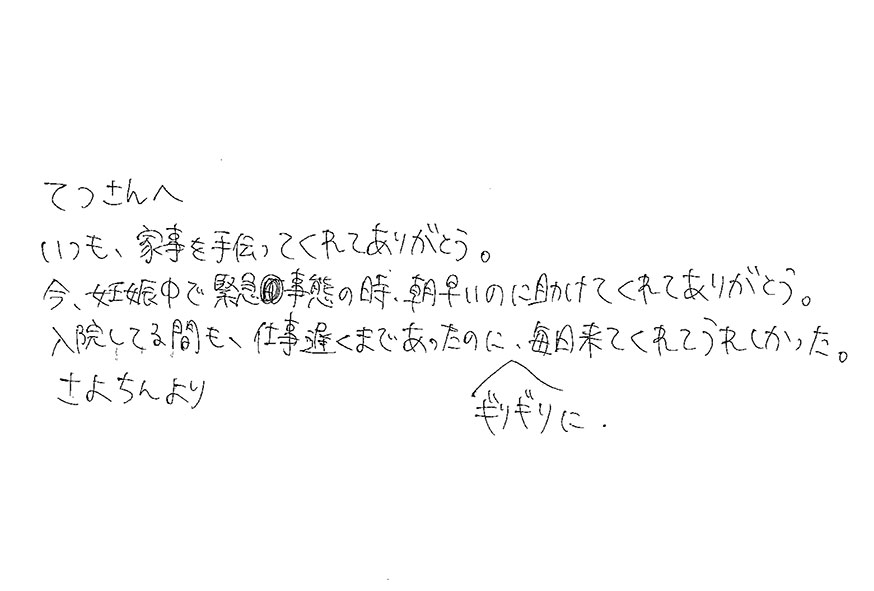 てつさんへ
いつも、家事を手伝ってくれてありがとう。
今、妊娠中で緊急事態の時、朝早いのに助けてくれてありがとう。
入院してる間も、仕事遅くまであったのに、毎日来てくれてうれしかった。
さよちんより
ギリギリに